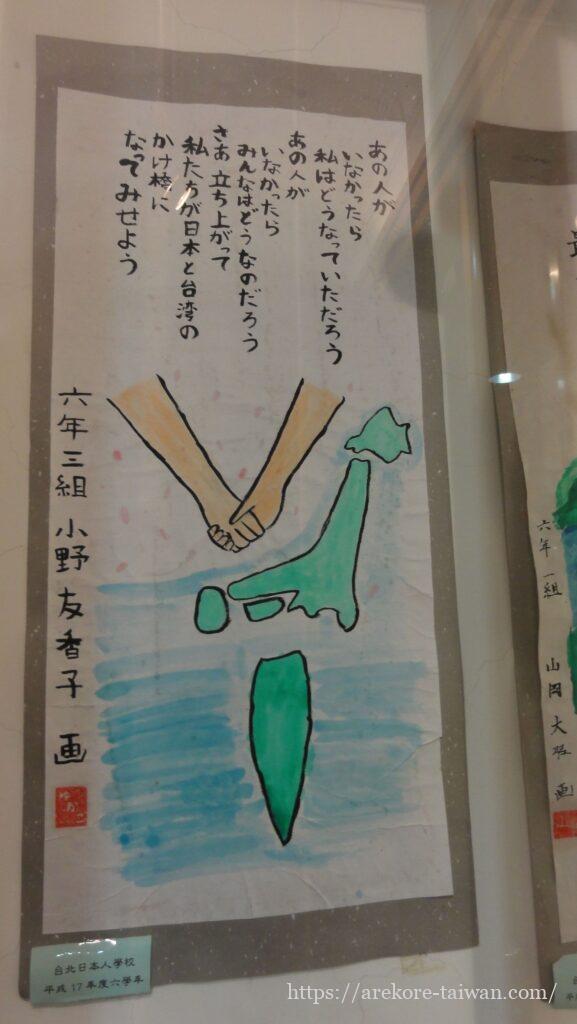 あの人が
いなかったら
私はどうなっていただろう
あの人が
いなかったら
みんなはどうなのだろう
さあ立ち上がって
私たちが日本と台湾の
かけ橋に
なってみせよう
六年三組 小野友香子 画
ゆかこ
台北日本人學校
平成17年度六學年
六年一組 山岡大
画
https://arekore-taiwan.com/